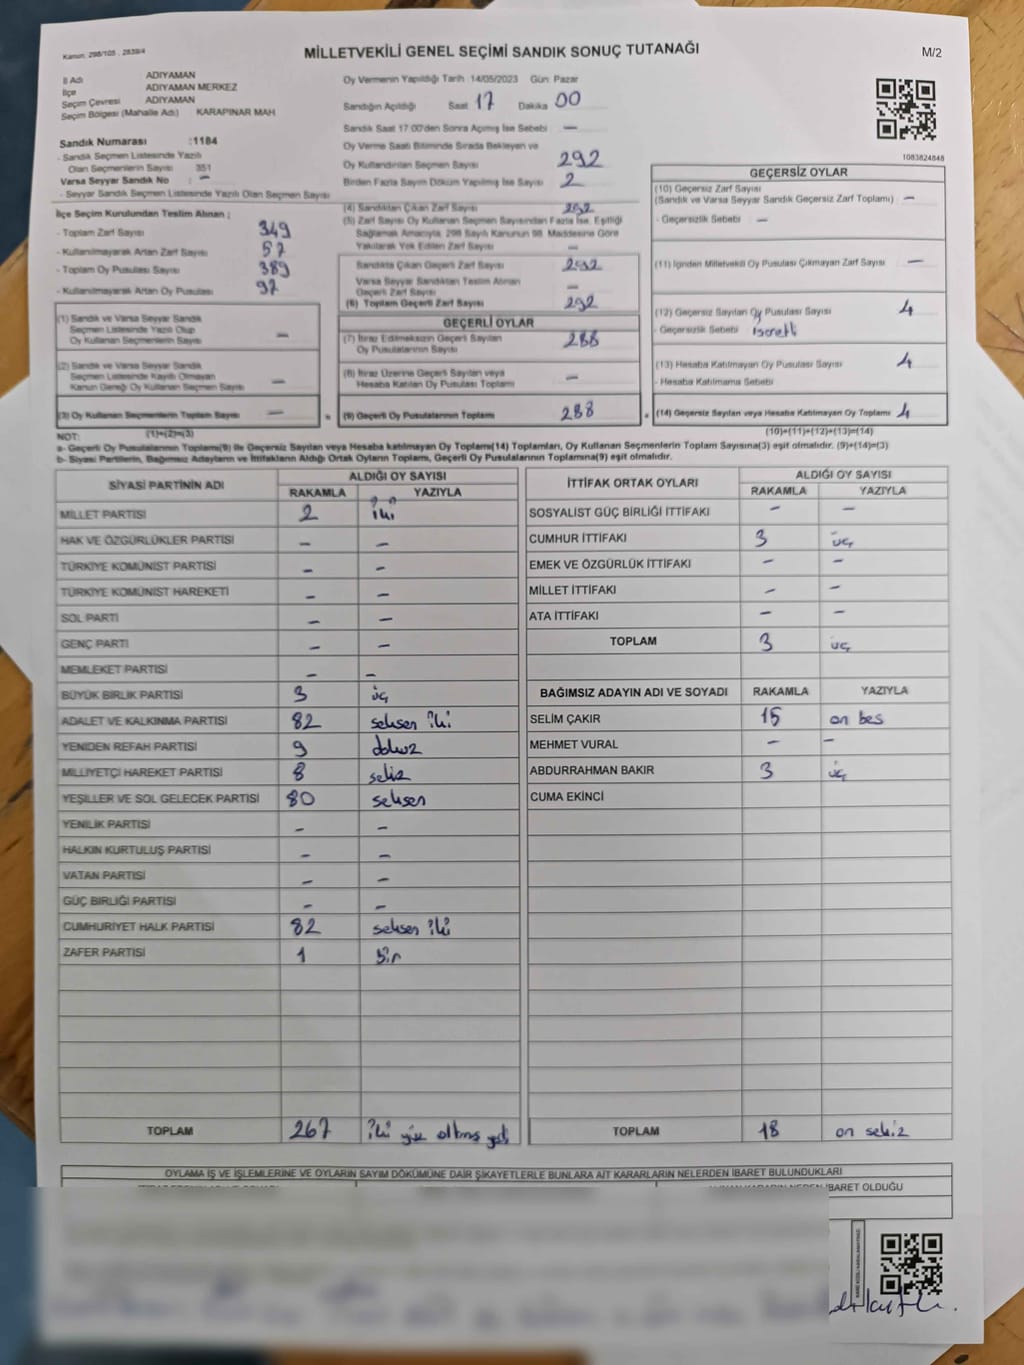 Kanun, 298/105 , 2839/4
MİLLETVEKİLİ GENEL SEÇİMİ SANDIK SONUÇ TUTANAĞI
M/2
İl Adı ADIYAMAN
İlçe ADIYAMAN MERKEZ
Seçim Çevresi ADIYAMAN
Seçim Bölgesi (Mahalle Adı) KARAPINAR MAH
Sandık Numarası :1184
- Sandık Seçmen Listesinde Yazılı
Olan Seçmenlerin Sayısı 351
Varsa Seyyar Sandık No : -
- Seyyar Sandık Seçmen Listesinde Yazılı Olan Seçmen Sayısı
Oy Vermenin Yapıldığı Tarih :14/05/2023 Gün: Pazar
Sandığın Açıldığı Saat 17 Dakika 00
Sandık Saat 17:00'den Sonra Açımış İse Sebebi -
Oy Verme Saati Bitiminde Sırada Bekleyen ve
Oy Kullandırılan Seçmen Sayısı 292
Birden Fazla Sayım Döküm Yapılmış İse Sayısı 2
1083824848
İlçe Seçim Kurulundan Teslim Alınan ;
- Toplam Zarf Sayısı 349
- Kullanılmayarak Artan Zarf Sayısı 57
- Toplam Oy Pusulası Sayısı 389
- Kullanılmayarak Artan Oy Pusulası 97
(1) Sandık ve Varsa Seyyar Sandık
Seçmen Listesinde Yazılı Olup
Oy Kullanan Seçmen Sayısı -
(2) Sandık ve Varsa Seyyar Sandık
Seçmen Listesinde Kayıtlı Olmayan
Kanun Gereği Oy Kullanan Seçmen Sayısı -
(3) Oy Kullanan Seçmenlerin Toplam Sayısı - =
(1)+(2)=(3)
(4) Sandıktan Çıkan Zarf Sayısı 292
(5) Zarf Sayısı Oy Kullanan Seçmen Sayısından Fazla İse, Eşitliği
Sağlamak Amacıyla, 298 Sayılı Kanunun 98. Maddesine Göre
Yakılarak Yok Edilen Zarf Sayısı -
Sandıkta Çıkan Geçerli Zarf Sayısı 292
Varsa Seyyar Sandıktan Teslim Alınan
Geçerli Zarf Sayısı -
(6) Toplam Geçerli Zarf Sayısı 292
GEÇERLİ OYLAR
(7) İtiraz Edilmeksizin Geçerli Sayılan
Oy Pusulalarının Sayısı 288
(8) İtiraz Üzerine Geçerli Sayılan veya
Hesaba Katılan Oy Pusulası Toplamı -
(9) Geçerli Oy Pusulalarının Toplamı 288 +
GEÇERSİZ OYLAR
(10) Geçersiz Zarf Sayısı
(Sandık ve Varsa Seyyar Sandık Geçersiz Zarf Toplamı) -
- Geçersizlik Sebebi -
(11) İçinden Milletvekili Oy Pusulası Çıkmayan Zarf Sayısı -
(12) Geçersiz Sayılan Oy Pusulası Sayısı 4
- Geçersizlik Sebebi isaretli
(13) Hesaba Katılmayan Oy Pusulası Sayısı 4
- Hesaba Katılmama Sebebi
(14) Geçersiz Sayılan veya Hesaba Katılmayan Oy Toplamı 4
(10)+(11)+(12)+(13)=(14)
NOT:
a- Geçerli Oy Pusulalarının Toplamı(9) ile Geçersiz Sayılan veya Hesaba katılmayan Oy Toplamı(14) Toplamları, Oy Kullanan Seçmenlerin Toplam Sayısına(3) eşit olmalıdır. (9)+(14)=(3)
b- Siyasi Partilerin, Bağımsız Adayların ve İttifakların Aldığı Ortak Oyların Toplamı, Geçerli Oy Pusulalarının Toplamına(9) eşit olmalıdır.
SİYASİ PARTİNİN ADI ALDIĞI OY SAYISI
RAKAMLA YAZIYLA
MİLLET PARTİSİ 2 iki
HAK VE ÖZGÜRLÜKLER PARTİSİ - -
TÜRKİYE KOMÜNİST PARTİSİ - -
TÜRKİYE KOMÜNİST HAREKETİ - -
SOL PARTİ - -
GENÇ PARTİ - -
MEMLEKET PARTİSİ - -
BÜYÜK BİRLİK PARTİSİ 3 üç
ADALET VE KALKINMA PARTİSİ 82 seksen iki
YENİDEN REFAH PARTİSİ 9 dokuz
MİLLİYETÇİ HAREKET PARTİSİ 8 sekiz
YEŞİLLER VE SOL GELECEK PARTİSİ 80 seksen
YENİLİK PARTİSİ - -
HALKIN KURTULUŞ PARTİSİ - -
VATAN PARTİSİ - -
GÜÇ BİRLİĞİ PARTİSİ - -
CUMHURİYET HALK PARTİSİ 82 seksen iki
ZAFER PARTİSİ 1 bir
TOPLAM 267 iki yüz altmış yedi
İTTİFAK ORTAK OYLARI ALDIĞI OY SAYISI
RAKAMLA YAZIYLA
SOSYALİST GÜÇ BİRLİĞİ İTTİFAKI - -
CUMHUR İTTİFAKI 3 üç
EMEK VE ÖZGÜRLÜK İTTİFAKI - -
MİLLET İTTİFAKI - -
ATA İTTİFAKI - -
TOPLAM 3 üç
BAĞIMSIZ ADAYIN ADI VE SOYADI RAKAMLA YAZIYLA
SELİM ÇAKIR 15 on bes
MEHMET VURAL - -
ABDURRAHMAN BAKIR 3 üç
CUMA EKİNCİ
TOPLAM 18 on sekiz
OYLAMA İŞ VE İŞLEMLERİNE VE OYLARIN SAYIM DÖKÜMÜNE DAİR ŞİKAYETLERLE BUNLARA AİT KARARLARIN NELERDEN İBARET BULUNDUKLARI
İBARET OLDUĞU